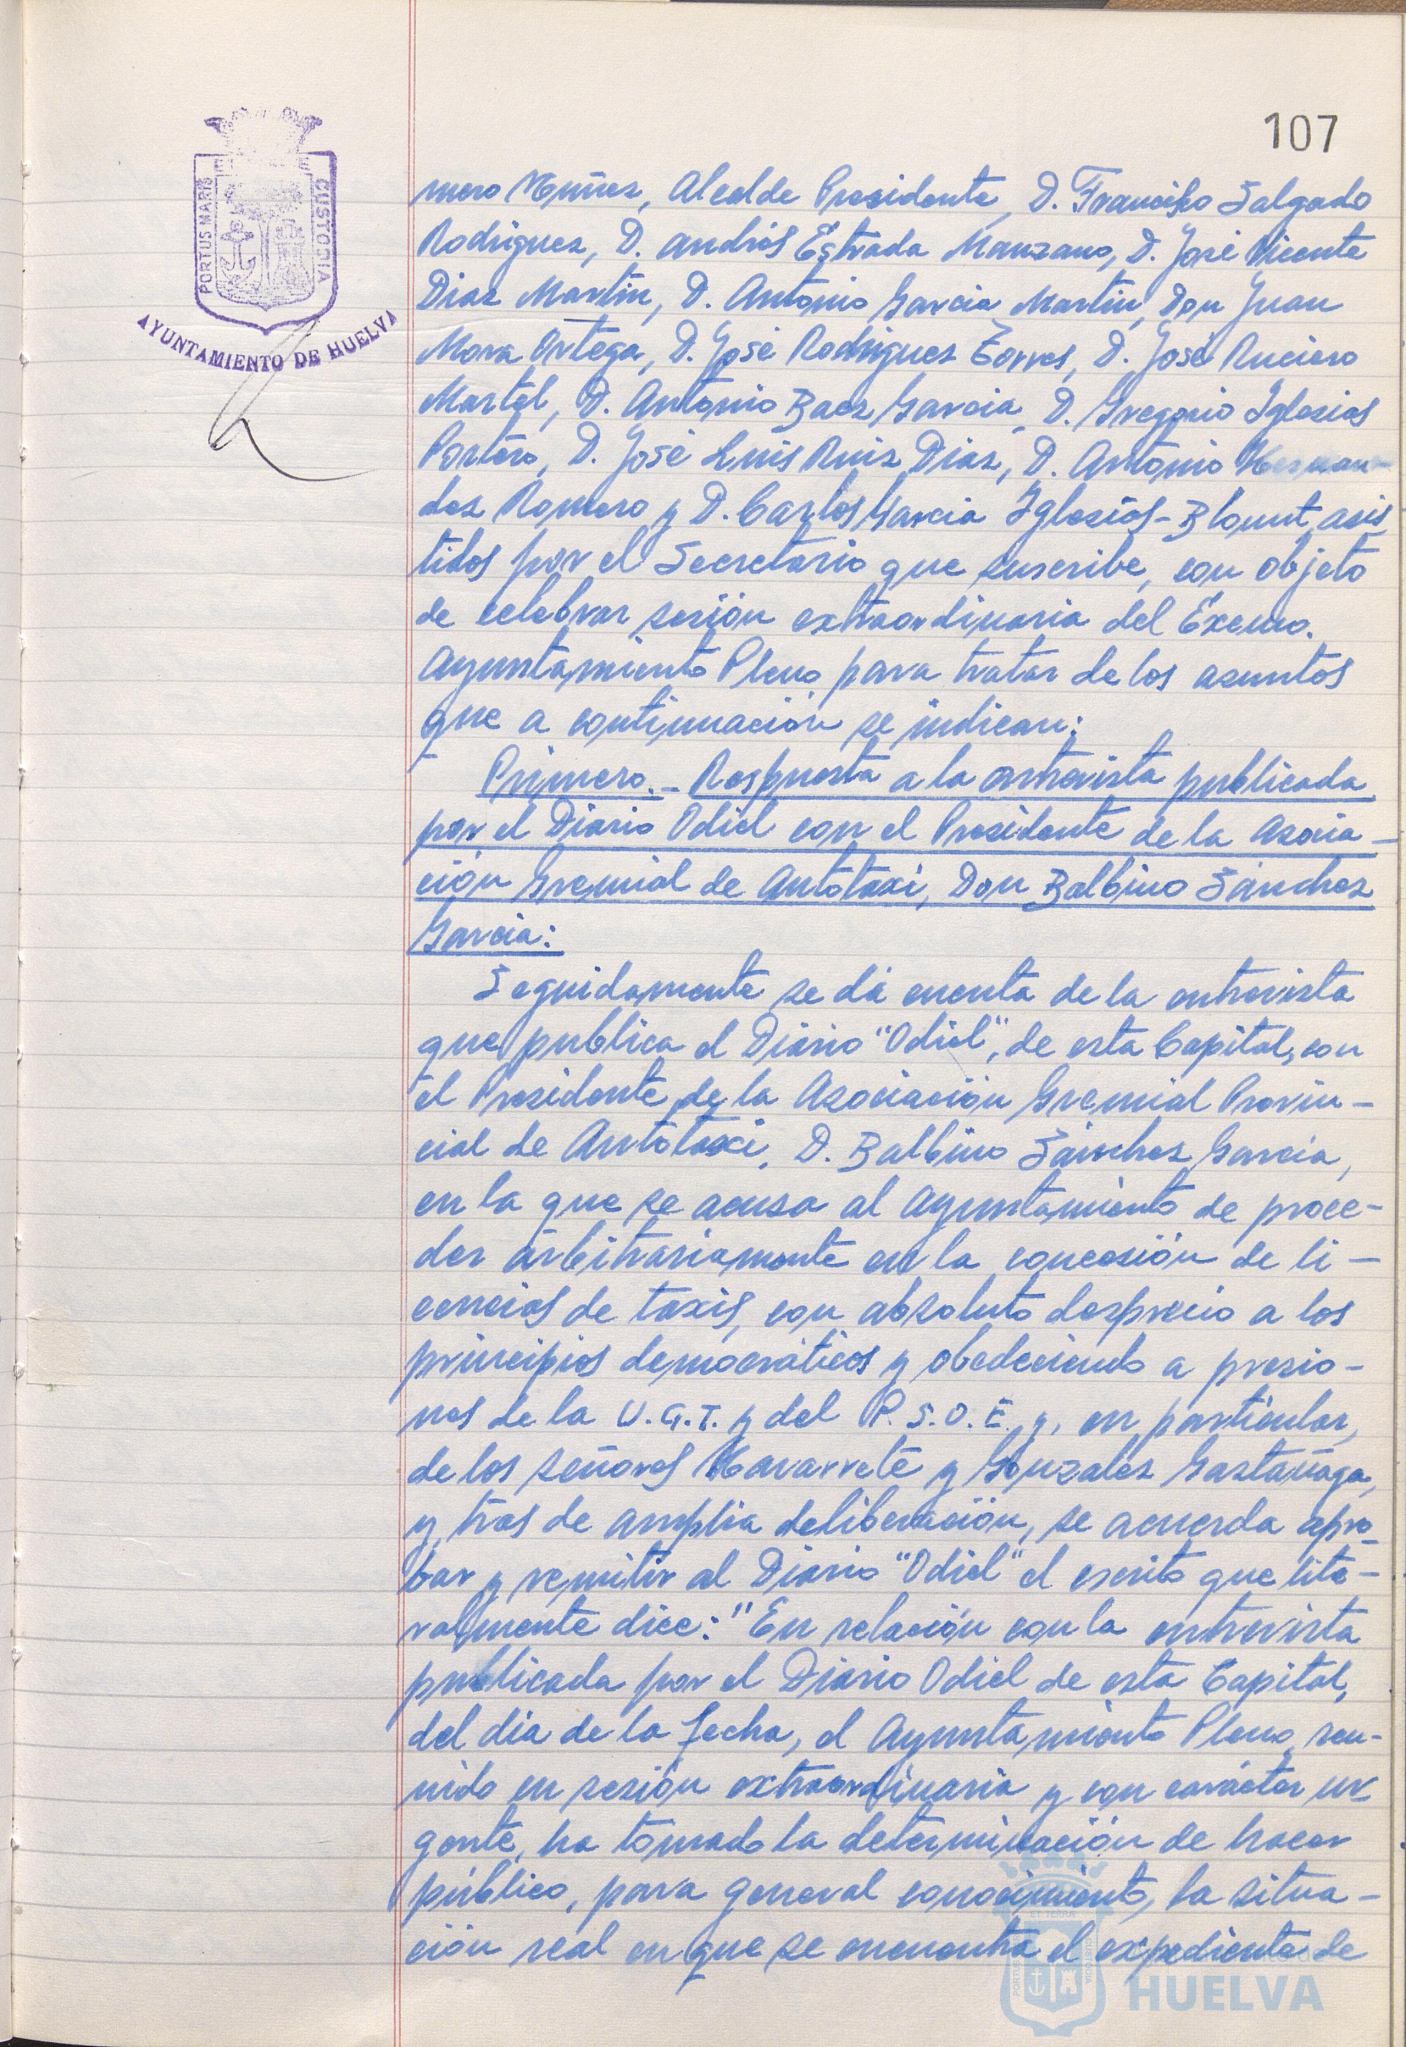 107
PORTUS MARIS
CUSTODIA
AYUNTAMIENTO DE HUELVA
mero Muñoz, Alcalde Presidente, D. Francisco Salgado
Rodriguez, D. Andrés Estrada Manzano, D. José Vicente
Diaz Martín, D. Antonio Garcia Martin, Don Juan
Mora Ortega, D. José Rodriguez Torres, D. José Ruciero
Martel, D. Antonio Baez Garcia, D. Gregorio Iglesias
Portero, D. José Luis Ruiz Diaz, D. Antonio Hernan-
dez Romero y D. Carlos Garcia Iglesias-Blount, asis
tidos por el Secretario que suscribe, con objeto
de celebrar sesión extraordinaria del Excmo.
Ayuntamiento Pleno para tratar de los asuntos
que a continuación se indican:
Primero.- Respuesta a la entrevista publicada
por el Diario Odiel con el Presidente de la Asocia-
ción Gremial de Autotaxi, Don Balbino Sánchez
Garcia:
Seguidamente se dá cuenta de la entrevista
que publica el Diario "Odiel", de esta Capital, con
el Presidente de la Asociación Gremial Provin-
cial de Autotaxi, D. Balbino Sánchez Garcia,
en la que se acusa al Ayuntamiento de proce-
der arbitrariamente en la concesión de li-
cencias de taxis, con absoluto desprecio a los
principios democráticos y obedeciendo a presio-
nes de la U.G.T. y del P.S.O.E. y, en particular,
de los señores Navarrete y González Gaztañaga,
y, tras de amplia deliberación, se acuerda apro-
bar y remitir al Diario "Odiel" el escrito que lite-
ralmente dice: "En relación con la entrevista
publicada por el Diario Odiel de esta Capital,
del dia de la fecha, el Ayuntamiento Pleno, reu-
nido en sesión extraordinaria y con carácter ur
gente, ha tomado la determinación de hacer
público, para general conocimiento, la situa-
ción real en que se encuentra el expediente de
HUELVA